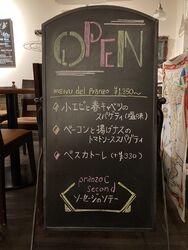 OPEN
menu del Pranzo ¥1350〜
小エビと春キャベツの
スパゲティ(塩味)
ベーコンと揚げナスの
トマトソーススパゲティ
ペスカトーレ (+¥330)
pranzo C
second
ソーセージのソテー